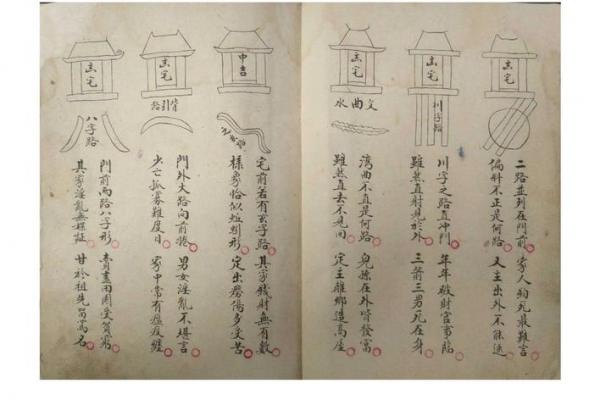 凶宅
二路並列在門前
家人絢死最難言
偏斜不正是何路
又主出外不能還
凶宅
川字路
川字之路直冲門
年年破財官事臨
雖然直射見於外
三箭三男死在身
凶宅
文曲水
湾曲不直是何路
兒孫在外皆發富
雖然直去不見回
定主離鄉造高屋
中吉
之玄路
宅前若有玄字路
其家錢財無有數
樣象恰似蚯蚓形
定出癆傷多受苦
凶宅
背引路
門外大路向前捲
男女淫亂不堪言
少亡孤寡難度日
家中常有瘟疫纏
凶宅
八字路
門前両路八字形
賣盡田園受貧窮
其家淫亂無媒証
甘於祖先留罵名